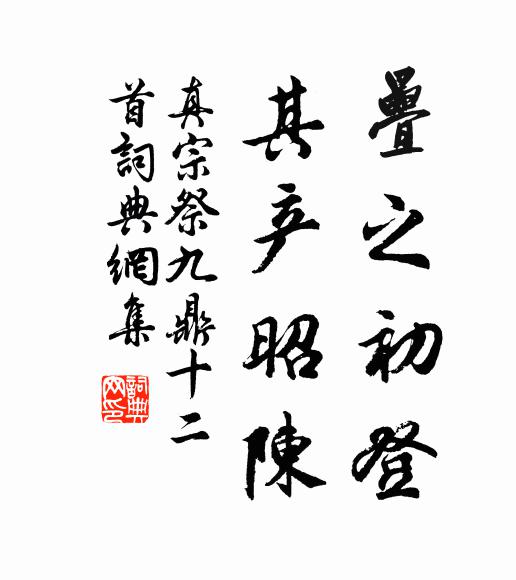 疊之初登
其产昭陳
真宗祭九鼎十二
首詞典網集
詞典
网印